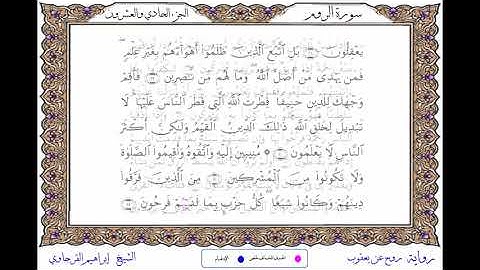 سورة الروم
الجزء الحادي والعشرون
يَعْقِلُونَ ۝ بَلِ ٱتَّبَعَ ٱلَّذِينَ ظَلَمُوٓا۟ أَهْوَآءَهُم بِغَيْرِ عِلْمٍ ۖ
فَمَن يَهْدِى مَنْ أَضَلَّ ٱللَّهُ ۖ وَمَا لَهُم مِّن نَّـٰصِرِينَ ۝ فَأَقِمْ
وَجْهَكَ لِلدِّينِ حَنِيفًا ۚ فِطْرَتَ ٱللَّهِ ٱلَّتِى فَطَرَ ٱلنَّاسَ عَلَيْهَا ۚ لَا
تَبْدِيلَ لِخَلْقِ ٱللَّهِ ۚ ذَٰلِكَ ٱلدِّينُ ٱلْقَيِّمُ وَلَـٰكِنَّ أَكْثَرَ
ٱلنَّاسِ لَا يَعْلَمُونَ ۝ مُنِيبِينَ إِلَيْهِ وَٱتَّقُوهُ وَأَقِيمُوا۟ ٱلصَّلَوٰةَ
وَلَا تَكُونُوا۟ مِنَ ٱلْمُشْرِكِينَ ۝ مِنَ ٱلَّذِينَ فَرَّقُوا۟
دِينَهُمْ وَكَانُوا۟ شِيَعًا ۖ كُلُّ حِزْبٍۭ بِمَا لَدَيْهِمْ فَرِحُونَ ۝
رواية روح عن يعقوب
الإدغام
الشيخ إبراهيم الفرجاوي